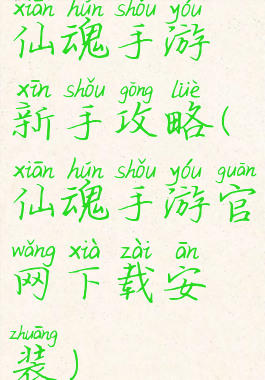 xiān hún shǒu yóu
仙魂手游
xīn shǒu gōng lüè
新手攻略(
xiān hún shǒu yóu guān
仙魂手游官
wǎng xià zài ān
网下载安
zhuāng
装)